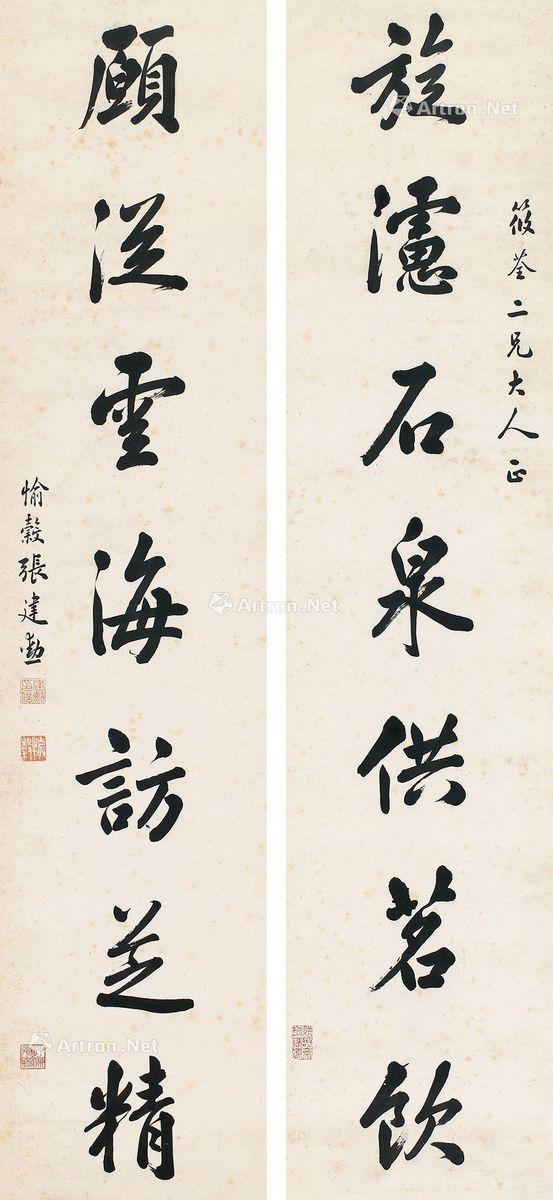 旋濾石泉供茗飲
筱荃二兄大人正
願從雲海訪芝精
愉穀張建勳
Artron.Net
Artron.Net
Artron.Net
Artron.Net